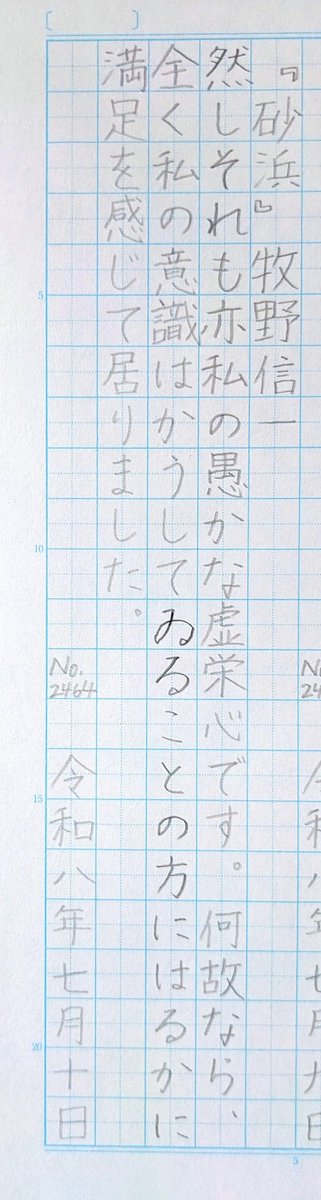 『砂浜』牧野信一
然しそれも亦私の愚かな虚栄心です。何故なら、
全く私の意識はかうしてゐることの方にはるかに
満足を感じて居りました。
No.
2464
令和八年七月十日
5
10
15
20
5